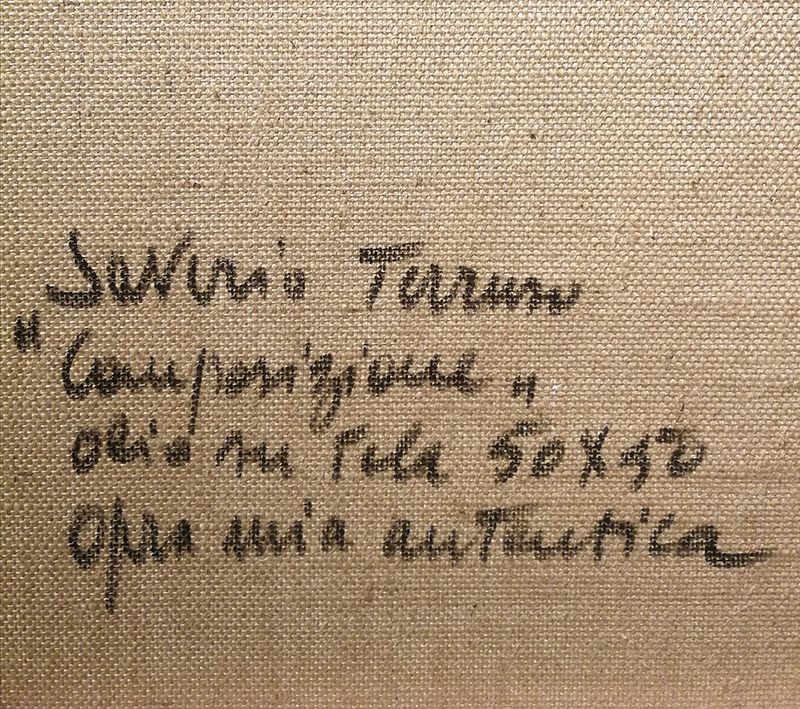 Saverio Terruso
"Composizione"
olio su tela 50x40
Opra mia autentica